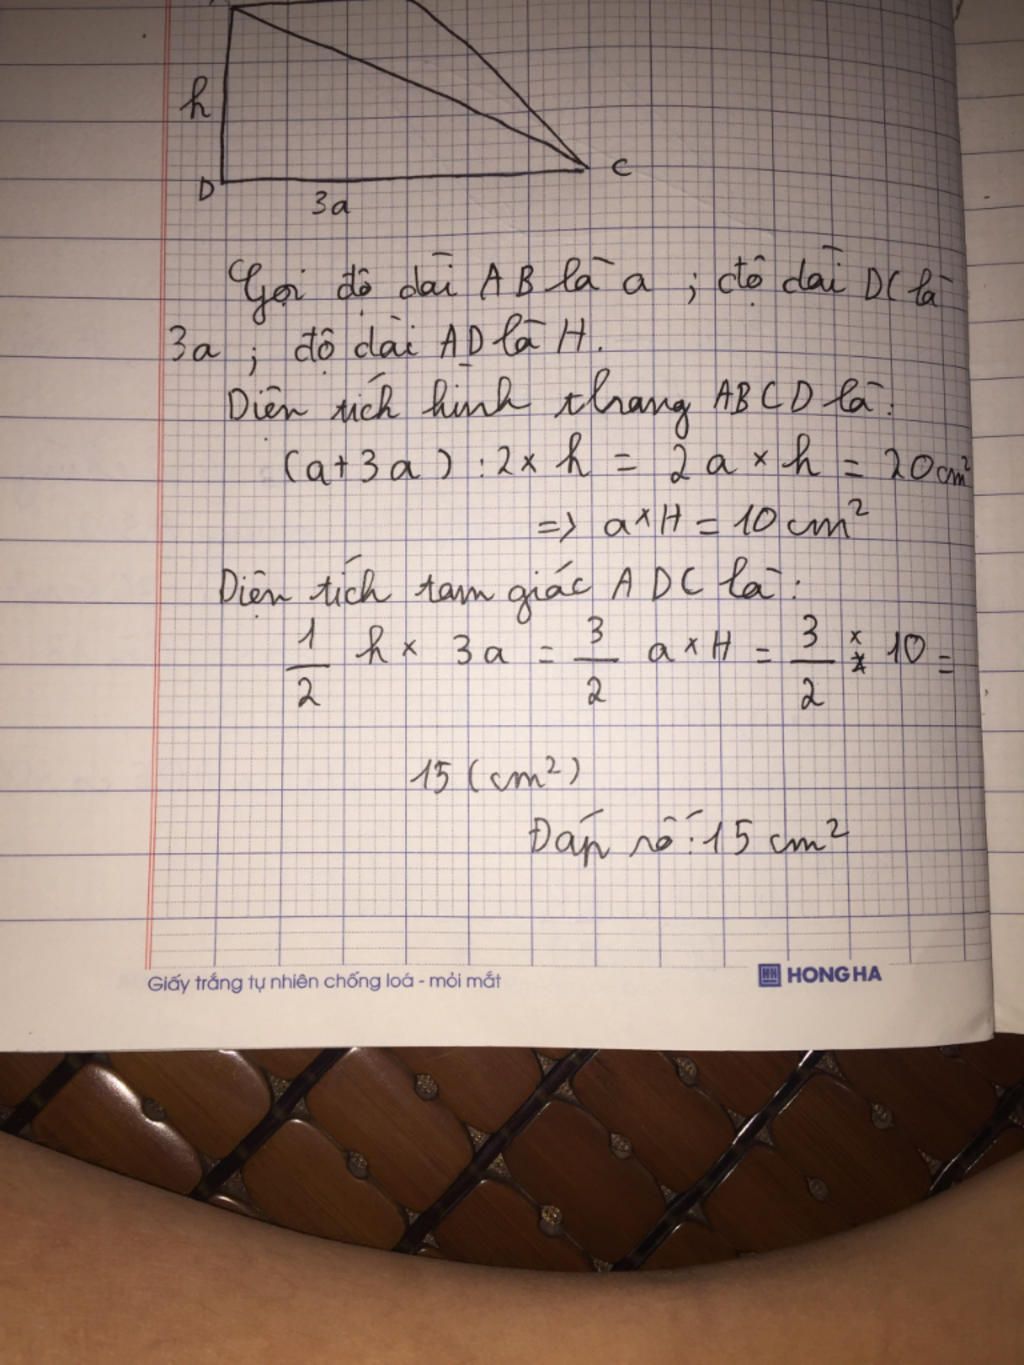 h
D
C
3a
Gọi độ dài AB là a ; độ dài DC là
3a ; độ dài AD là H.
Diện tích hình thang ABCD là :
(a+3a) : 2 × h = 2a × h = 20cm²
=> a × H = 10cm²
Diện tích tam giác ADC là :
1/2 h × 3a = 3/2 a × H = 3/2 × 10 =
15 (cm²)
Đáp số : 15 cm²
Giấy trắng tự nhiên chống loá - mỏi mắt
HH HONG HA